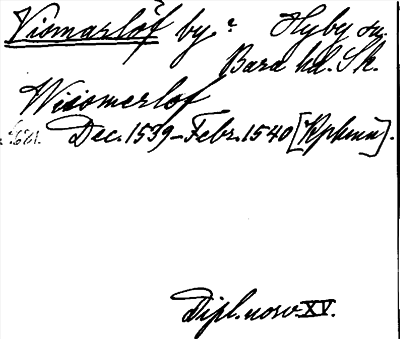 Viomarlöf by. Hyby sn.
Bara hd. Sk.
Wisomerlof
Dec. 1539–Febr. 1540 [Kphmn].
Dipl. norv. XV.